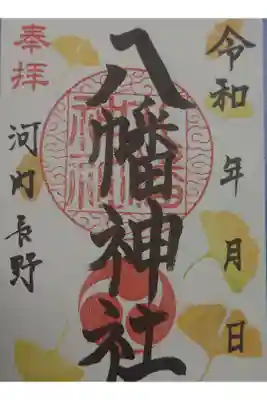 令和 年 月 日
八幡神社
奉拝
河内長野